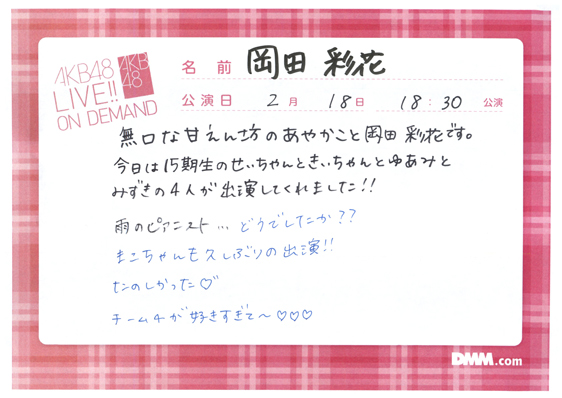 AKB48
LIVE!!
ON DEMAND
AKB
48
名前 岡田 彩花
公演日 2月 18日 18:30 公演
無口な甘えん坊のあやかこと岡田彩花です。
今日は15期生のせいちゃんときぃちゃんとゆあみと
みずきの4人が出演してくれました!!
雨のピアニスト… どうでしたか??
まこちゃんも久しぶりの出演!!
たのしかった♡
チーム4が好きすぎて〜♡♡♡
DMM.com